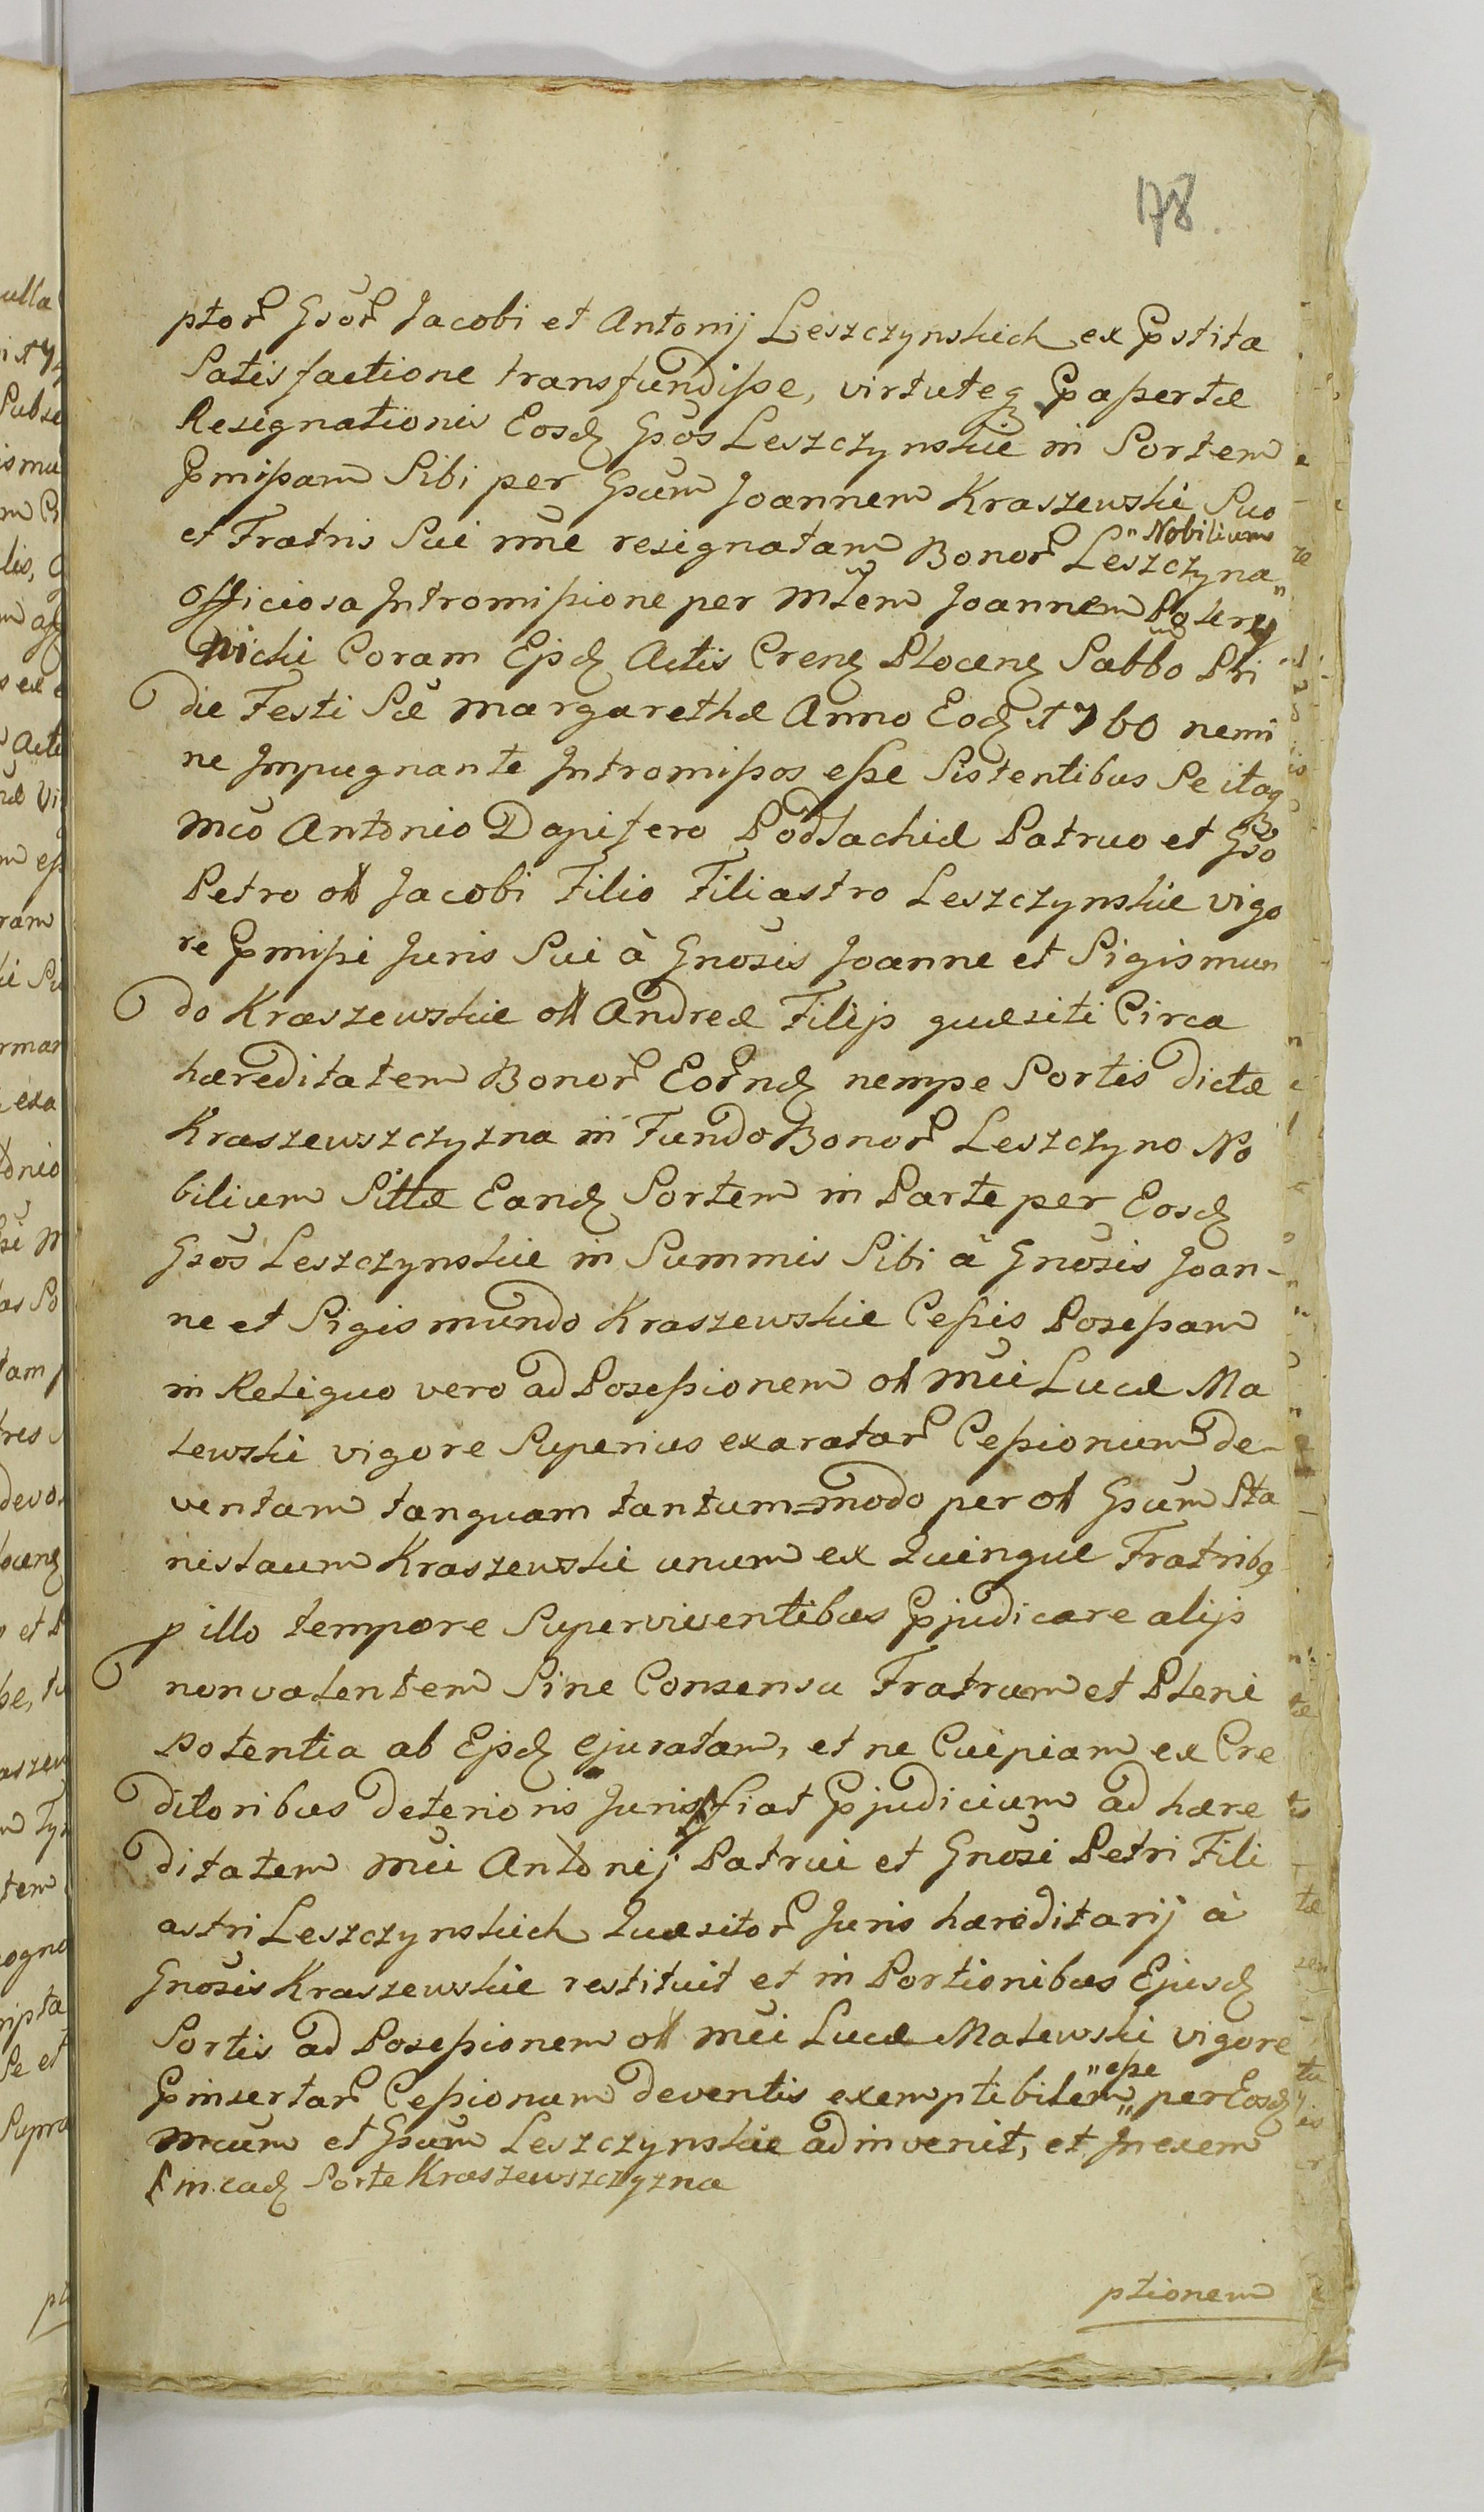 178
ptor̃ Gsõr̃ Jacobi et Antonij Leszczynskich ex Pstita
Satisfactione transfundisse, virtuteq̃ Passertæ
Resignationis Eosđ Gsõs Leszczynskie in Sortem
Pmissam Sibi per Gsũm Joannem Kraszewski Suo
et Fratris Sui nñe resignatam Bonor̃ Leszczyna "Nobilium"
Officiosa Intromissione per Mĩlem Joannem
wicki Coram Ejsđ Actis Crens Plocens Sabbo Pri
die Festi Sæ Margarethæ Anno Eođ 1760 nemi
ne Impugnante Intromissos esse Sistentibus Se itaq̃
Mc̃o Antonio Dapifero Podlachiæ Patruo et Gsõ
Petro oll Jacobi Filio Filiastro Leszczynskie vigo
re Pmissi Juris Sui à Gnõsis Joanne et Sigismun
do Kraszewskie oll Andreæ Filijs quæsiti Circa
hæreditatem Bonor̃ Eor̃nđ nempe Sortis dictæ
Kraszewszczyzna in Fundo Bonor̃ Leszczyno No
bilium Sittæ Eanđ Sortem in Parte per Eosđ
Gsõs Leszczynskie in Summis Sibi à Gnõsis Joan-
ne et Sigismundo Kraszewskie Cessis Posessam
in Reliquo vero ad Posessionem oll Mc̃i Lucæ Ma
lewski vigore Superius exaratar̃ Cessionum de-
ventam tanquam tantum=modo per oll Gsũm Sta
nislaum Kraszewski unum ex Quinque Fratribq
p illo tempore Superviventibus Pjudicare alijs
non valentem Sine Consensu Fratrum et Pleni
potentia ab Ejsđ ejuratam, et ne Cuipiam ex Cre
ditoribus deterioris Juris fiat Pjudicium ad hære
ditatem Mc̃i Antonij Patrui et Gnõsi Petri Fili
astri Leszczynskich Quæsitor̃ Juris hæreditarij à
Gnõsis Kraszewskie restituit et in Portionibus Ejusđ
Sortis ad Posessionem oll Mc̃i Lucæ Malewski vigore
Pinsertar̃ Cessionum deventis exemptibilem "esse" per Eosđ
Mc̃um et Gsũm Leszczynskie adinvenit, et In exem
in eađ Sorte Kraszewszczyzna
ptionem